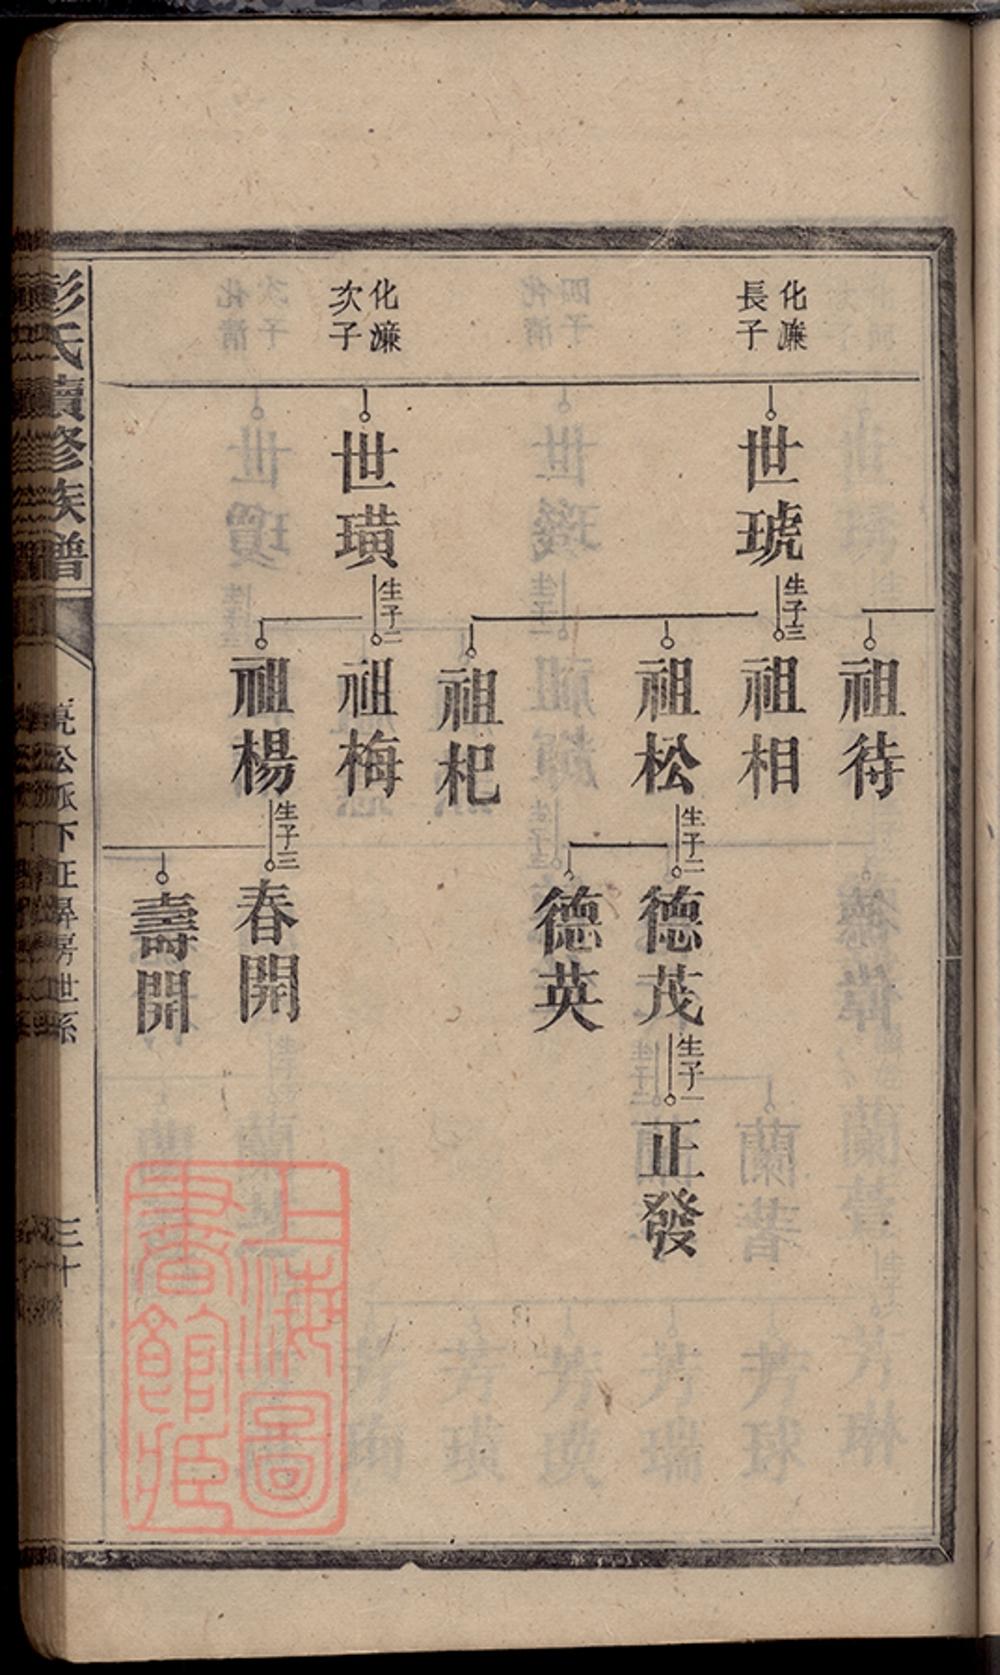 化濂
長子
世琥
生子三
祖待
祖相
祖松
祖杞
生子二
德茂
德英
生子一
正發
化濂
次子
世璜
生子二
祖梅
祖楊
生子三
春開
壽開
彭氏續修族譜
三十
上海圖
書館藏